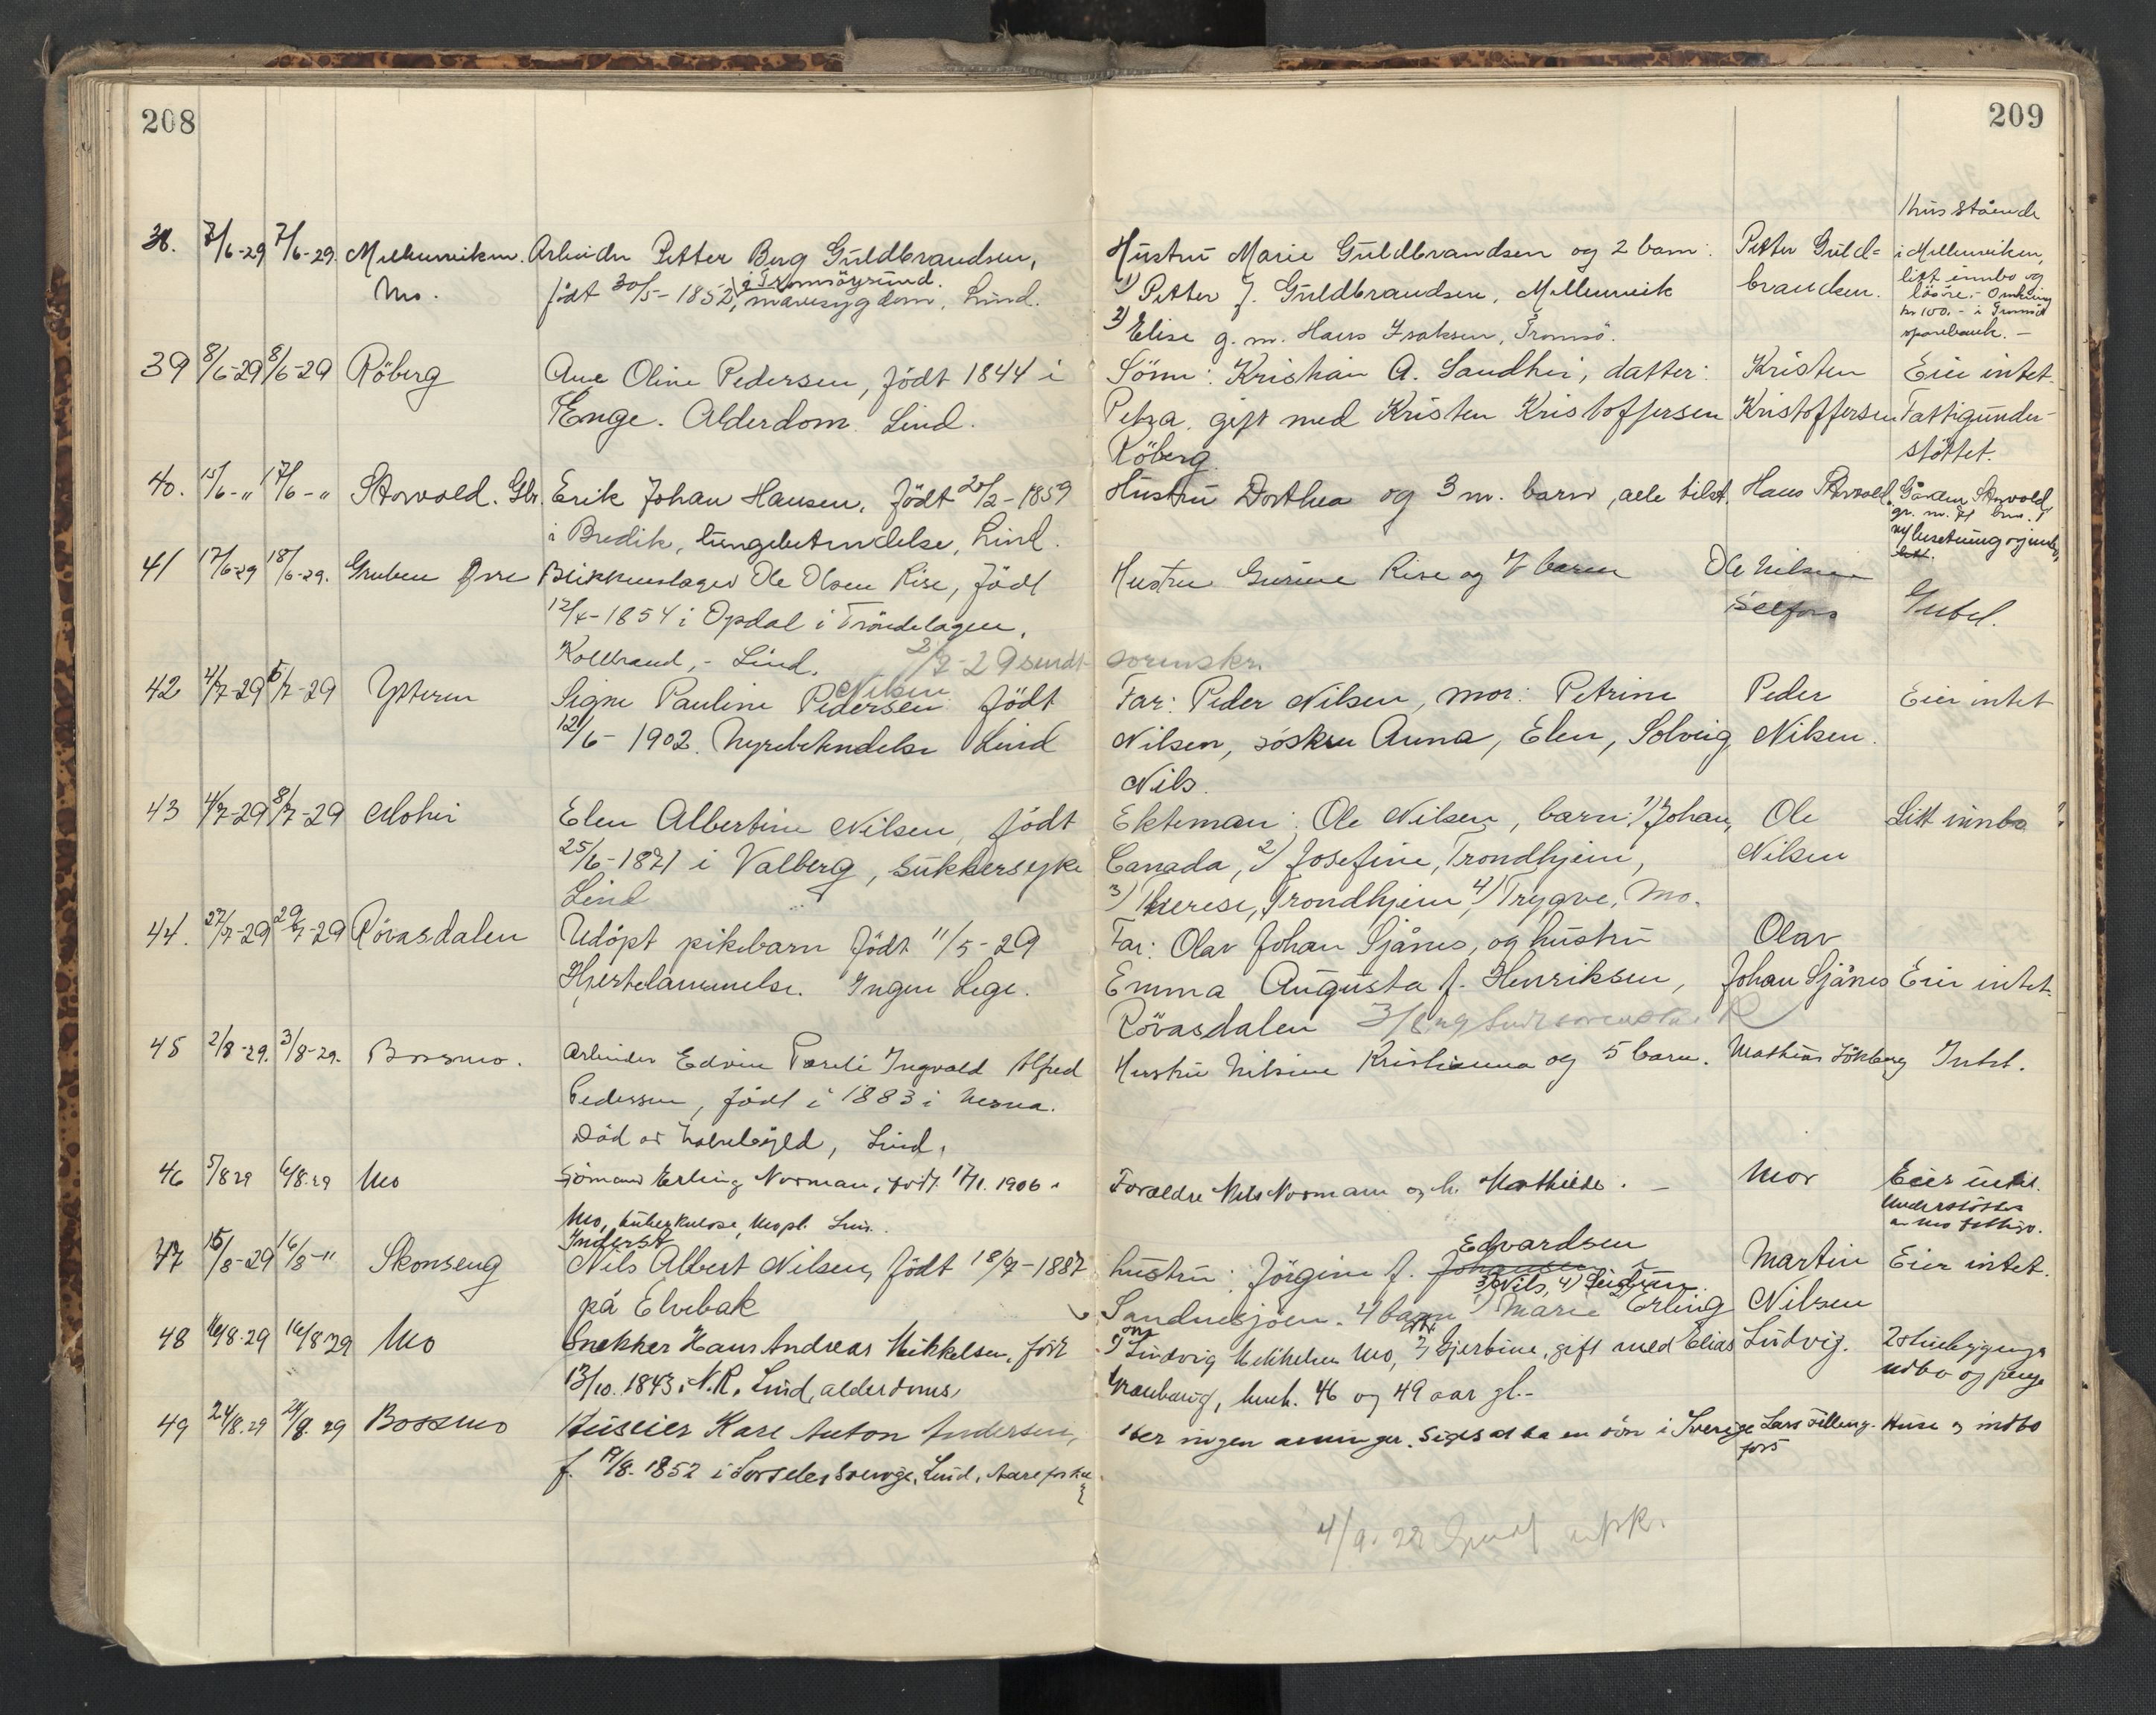 208
209
38. 7/6-29 7/6-29. Mellemviken. Arbeider Petter Berg Guldbrandsen, Hustru Marie Guldbrandsen og 2 barn: Petter Guld= 1 hus stående
Mo. født 30/5-1852, i Tromsøysund. mavesygdom, Lind. 1) Petter J. Guldbrandsen, Mellemvik brandsen. i Mellemviken,
litt innbo og
løsøre. - Omkring
2) Elise g. m. Hans Isaksen, Tromsö. kr 100,- i Tromsö
sparebank. -
39 8/6-29 8/6-29 Röberg Ane Oline Pedersen, født 1844 i Sönn: Kristian A. Sandhei, datter: Kristen Eier intet.
Enge. Alderdom. Lind. Petra gift med Kristen Kristoffersen Kristoffersen Fattigunder-
Röberg. støttet.
40. 15/6-" 17/6-" Storvold. Gbr. Erik Johan Hansen, født 20/2-1859 Hustru Dorthea og 3 m. barn, alle tilst. Hans Storvold. Gården Storvold
i Bredik, lungebetendelse, Lind. gr. m. 71 bnr. 1
m/ besetning og innbo
41 17/6-29 18/6-29. Gruben Øvre Blikkenslager Ole Olsen Rise, født Hustru Gurine Rise og 7 barn Ole Nilsen
12/4-1854 i Opdal i Tröndelagen, Selfors Intet.
Koldbrand, - Lind. 2/7-29 sendt sorenskr.
42 4/7-29 5/7-29 Ytteren Signe Pauline Pedersen Nilsen født Far: Peder Nilsen, mor: Petrine Peder Eier intet
12/6-1902. Nyrebetendelse Lind Nilsen, søsken Anna, Elen, Solveig Nilsen.
Nils.
43 4/7-29 8/7-29 Mohei Elen Albertine Nilsen, født Ekteman: Ole Nilsen, barn: 1) Johan, Ole Litt innbo
25/6-1871 i Valberg, sukkersyke Canada, 2) Josefine, Trondhjem, Nilsen
Lind 3) Therese, Trondhjem, 4) Trygve, Mo.
44. 27/7-29 29/7-29 Rövasdalen Udöpt pikebarn født 11/5-29 Far: Olav Johan Sjånes, og hustru Olav
Hjertelammelse. Ingen Lege. Emma Augusta f. Henriksen, Johan Sjånes Eier intet.
Rövasdalen 3/8 29 Sendt sorenskr. R
45 2/8-29. 3/8-29. Bossmo. Arbeider Edvin Pareli Ingvald Alfred Hustru Nilsine Kristianna og 5 barn. Mathias Lökberg Intet.
Pedersen, født i 1883 i Nesna.
Död av halsebyld, Lind.
46 5/8 29 6/8.29 Mo Sjömann Erling Norman, født 17/1. 1906 i Foreldre Nils Normann og h. Mathilde. - Mor Eier intet.
Mo, tuberkulose, Mo pl. Lind. Understöttes
av Mo fattigv.
47 15/8-29 16/8-" Skonseng Inderst Nils Albert Nilsen, født 18/9-1887 hustru: Jörgine f. Johansen Edvardsen Martin Eier intet.
på Elvebak Sandnesjöen. 4 barn 1) Marie 2) Erling 3) Nils, 4) Nilsen
48 16/8.29 16/8 29 Mo Snekker Hans Andreas Mikkelsen, født 1) Ludvig Mikkelsen Mo, 2) Gjertine, gift med Elias Ludvig. 2
13/10. 1843 i N.R. Lind, alderdoms henh. 46 og 49 aar gl.-
49 24/8.29 24/8. 29 Bossmo Huseier Karl Anton Andersen, Her ingen arvinger. Siges at ha en sön i Sverige Lars Huse og indbo
f. 19/8. 1852 i Sorsele, Sverige, Lind, fors
4/9. 29 Sendt